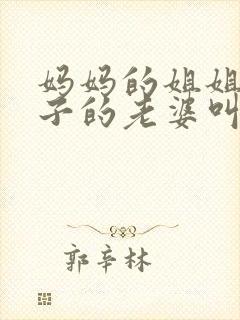 妈妈的姐姐
子的老婆叫
郭辛林